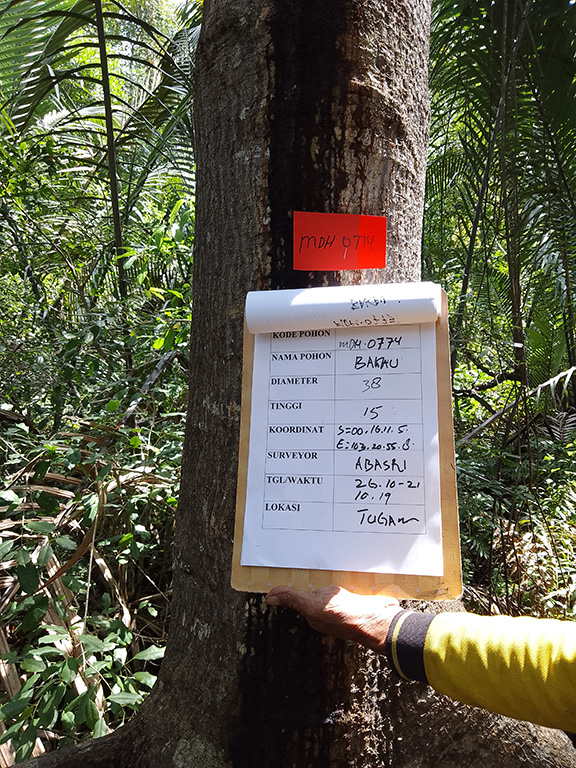 MDH 0774
KODE POHON MDH.0774
NAMA POHON BAKAU
DIAMETER 38
TINGGI 15
KOORDINAT S=00.16.11.5.
E=103.20.55.8.
SURVEYOR ABASRI
TGL/WAKTU 26.10-21
10.19
LOKASI TUGAM